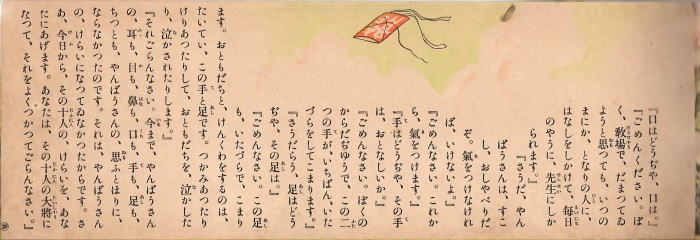 『口はどうぢや、口は。』
『ごめんください。ぼ
く、教場で、だまつてゐ
ようと思つても、いつの
まにか、となりの人に、
はなしをしかけて、毎日
のやうに、先生にしか
られます。』
『さうだ、やん
ばうさんは、すこ
し、おしやべりだ
ぞ。氣をつけなけれ
ば、いけないよ。』
『ごめんなさい。これか
ら、氣をつけます。』
『手はどうぢや、その手
は、おとなしいか。』
『ごめんなさい。ぼくの
からだぢゆうで、この二
つの手が、いちばん、いた
づらをしてこまります。』
『さうだらう、足はどう
ぢや、その足は。』
『ごめんなさい。この足
も、いたづらで、こまり
ます。おともだちと、けんくわをするのは、
たいてい、この手と足です。つかみあつたり
けりあつたりして、おともだちを、泣かした
り、泣かされたりします。』
『それごらんなさい。今まで、やんばうさん
の、耳も、目も、鼻も、口も、手も、足も、
ちつとも、やんばうさんの 思ふとほりに、
ならなかつたのです。それは、やんばうさん
の、けらいになつてゐなかつたからです。さ
あ、今日から、その十人の、けらいを、あな
たにあげます。あなたは、その十人の大將に
なつて、それをよくつかつてごらんなさい。』